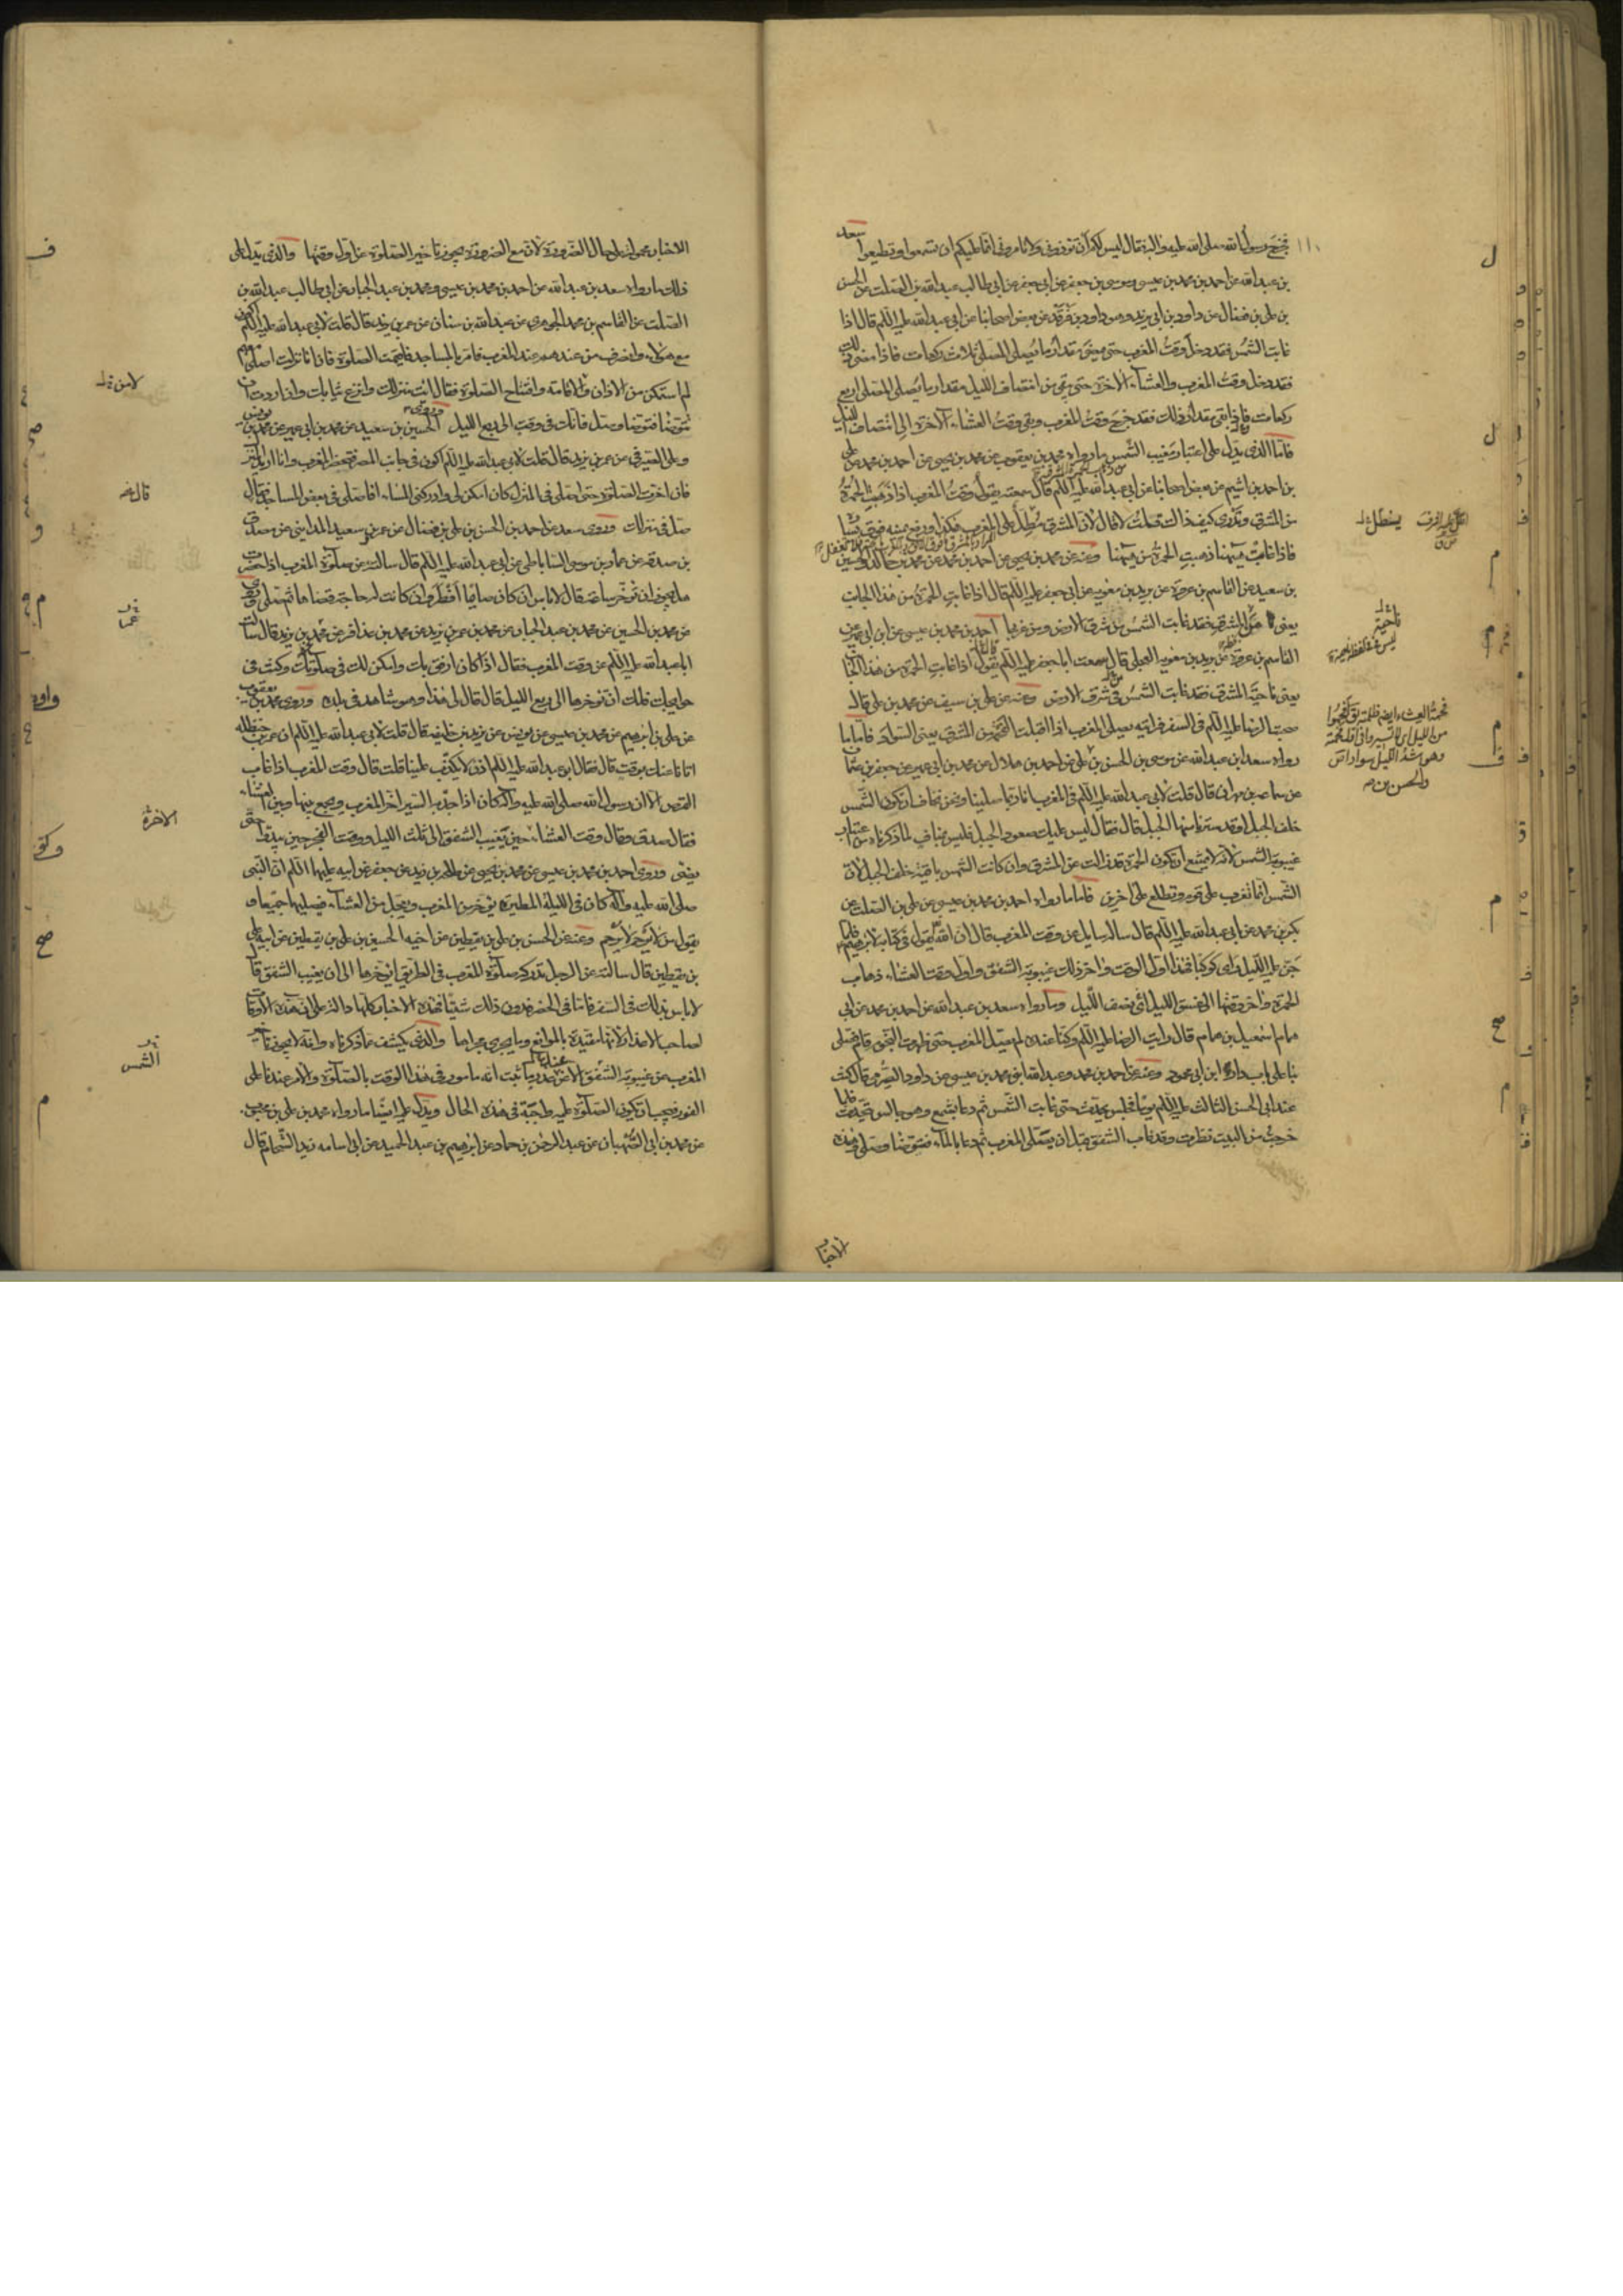 فخرج رسول الله صلى الله عليه واله فقال ليس لكم ان تؤذونى ولا تامرونى انما عليكم ان تسمعوا وتطيعوا سعد
بن عبدالله عن احمد بن محمد بن عيسى وموسى بن جعفر عن ابى جعفر عن ابى طالب عبدالله بن الصلت عن الحسن
بن على بن فضال عن داود بن ابى يزيد وهو داود بن فرقد عن بعض اصحابنا عن ابى عبدالله عليه السلم قال اذا
غابت الشمس فقد دخل وقت المغرب حتى يمضى مقدار ما يصلى المصلى ثلاث ركعات فاذا مضى ذلك
فقد دخل وقت المغرب والعشاء الاخرة حتى يبقى من انتصاف الليل مقدار ما يصلى المصلى اربع
ركعات فاذا بقى مقدار ذلك فقد خرج وقت المغرب وبقى وقت العشاء الاخرة الى انتصاف الليل
فاما الذى يدل على اعتبار مغيب الشمس ما رواه محمد بن يعقوب عن محمد بن يحيى عن احمد بن محمد عن على
بن احمد بن اشيم عن بعض اصحابنا عن ابى عبدالله عليه السلم قال سمعته يقول وقت المغرب اذا ذهبت الحمرة
من المشرق وتدرى كيف ذاك قلت لا قال لان المشرق مطل على المغرب هكذا ورفع يمينه فوق يساره
فاذا غابت هيهنا ذهبت الحمرة من هيهنا وعنه عن محمد بن يحيى عن احمد بن محمد عن محمد بن خالد والحسين
بن سعيد عن القاسم بن عروة عن بريد بن معوية عن ابى جعفر عليه السلم قال اذا غابت الحمرة من هذا الجانب
يعنى من المشرق فقد غابت الشمس من شرق الارض ومن غربها احمد بن محمد بن عيسى عن ابن ابى عمير عن
القاسم بن عروة عن بريد بن معوية العجلى قال سمعت ابا جعفر عليه السلم يقول اذا غابت الحمرة من هذا الجانب
يعنى ناحية المشرق فقد غابت الشمس فى شرق الارض وعنه عن على بن سيف عن محمد بن على قال
صحبت الرضا عليه السلم فى السفر فرايته يصلى المغرب اذا اقبلت الفحمة من المشرق يعنى السواد فاما ما
رواه سعد بن عبدالله عن موسى بن الحسن بن على عن احمد بن هلال عن محمد بن ابى عمير عن جعفر بن عثمان
عن سماعة بن مهران قال قلت لابى عبدالله عليه السلم فى المغرب انا ربما صلينا ونحن نخاف ان تكون الشمس
خلف الجبل او قد سترنا منها الجبل قال فقال ليس عليك صعود الجبل فليس بمناف لما ذكرناه من اعتبار
غيبوبة الشمس لانه لا يمتنع ان تكون الحمرة قد زالت عن المشرق وان كانت الشمس باقية خلف الجبل لان
الشمس انما تغرب على قوم وتطلع على اخرين فاما ما رواه احمد بن محمد بن عيسى عن على بن الصلت عن
بكر بن محمد عن ابى عبدالله عليه السلم قال ساله سايل عن وقت المغرب قال ان الله يقول فى كتابه لابرهيم فلما
جن عليه الليل راى كوكبا فهذا اول الوقت واخر ذلك غيبوبة الشفق واول وقت العشاء ذهاب
الحمرة واخر وقتها الى غسق الليل اى نصف الليل وما رواه سعد بن عبدالله عن احمد بن محمد عن ابى
همام اسمعيل بن همام قال رايت الرضا عليه السلم وكنا عنده لم يصل المغرب حتى ظهرت النجوم قام فصلى
بنا على باب دار ابن ابى محمود وعنه عن احمد بن محمد وعبدالله ابنى محمد بن عيسى عن داود الصرمى قال كنت
عند ابى الحسن الثالث عليه السلم يوما فجلس يحدث حتى غابت الشمس ثم دعا بشمع وهو جالس يتحدث فلما
خرجت من البيت نظرت وقد غاب الشفق قبل ان يصلى المغرب ثم دعا بالماء فتوضا وصلى فهذه
الاخبار
ناحية
الاخبار محمولة على حال الضرورة لان مع الضرورة يجوز تاخير الصلوة عن اول وقتها والذى يدل على
ذلك ما رواه سعد بن عبدالله عن احمد بن محمد بن عيسى ومحمد بن عبد الجبار عن ابى طالب عبدالله بن
الصلت عن القاسم بن محمد الجوهرى عن عبدالله بن سنان عن عمر بن يزيد قال قلت لابى عبدالله عليه السلم اكون
مع هؤلاء وانصرف من عندهم عند المغرب فامر بالمساجد فاقيمت الصلوة فان انا نزلت اصلى معهم
لم استمكن من الاذان والاقامة وافتتاح الصلوة فقال ائت منزلك وانزع ثيابك وان اردت ان
تتوضا فتوضا وصل فانك فى وقت الى ربع الليل الحسين بن سعيد عن محمد بن ابى عمير عن محمد بن يونس
وعلى الصيرفى عن عمر بن يزيد قال قلت لابى عبدالله عليه السلم اكون فى جانب المصر فتحضر المغرب وانا اريد المنزل
فان اخرت الصلوة حتى اصلى فى المنزل كان امكن لى وادركنى المساء افاصلى فى بعض المساجد فقال
صل فى منزلك وروى سعد عن احمد بن الحسن بن على بن فضال عن عمرو بن سعيد المداينى عن مصدق
بن صدقة عن عمار بن موسى الساباطى عن ابى عبدالله عليه السلم قال سالته عن صلوة المغرب اذا حضرت
هل يجوز ان تؤخر ساعة قال لا باس ان كان صايما افطر وان كانت له حاجة قضاها ثم صلى وروى
عن محمد بن الحسين عن محمد بن عبد الجبار عن محمد بن عمر بن يزيد عن محمد بن عذافر عن عمر بن يزيد قال سالت
ابا عبدالله عليه السلم عن وقت المغرب فقال اذا كان ارفق بك وامكن لك فى صلوتك وكنت فى
حوايجك فلك ان تؤخرها الى ربع الليل قال قال لى هذا وهو شاهد فى بلده وروى محمد بن يعقوب
عن على بن ابرهيم عن محمد بن عيسى عن يونس عن يزيد بن خليفة قال قلت لابى عبدالله عليه السلم ان عمر بن حنظلة
اتانا عنك بوقت قال فقال ابو عبدالله عليه السلم اذن لا يكذب علينا قلت قال وقت المغرب اذا غاب
القرص الا ان رسول الله صلى الله عليه واله كان اذا جد به السير اخر المغرب ويجمع بينها وبين العشاء
فقال صدق وقال وقت العشاء حين يغيب الشفق الى ثلث الليل ووقت الفجر حين يبدو حتى
يضى وروى احمد بن محمد بن عيسى عن محمد بن يحيى عن طلحة بن زيد عن جعفر عن ابيه عليهما السلم ان النبى
صلى الله عليه واله كان فى الليلة المطيرة يؤخر من المغرب ويعجل من العشاء فيصليهما جميعا و
يقول من لا يرحم لا يرحم وعنه عن الحسن بن على بن يقطين عن اخيه الحسين بن على بن يقطين عن ابيه على
بن يقطين قال سالته عن الرجل تدركه صلوة المغرب فى الطريق ايؤخرها الى ان يغيب الشفق قال
لا باس بذلك فى السفر فاما فى الحضر فدون ذلك شيئا فهذه الاخبار كلها دالة على ان هذه الاوقات
لصاحب الاعذار لانها مقيدة بالموانع وما يجرى مجراها والذى يكشف عما ذكرناه وانه لا يجوز تاخير
المغرب عن غيبوبة الشفق الا عن عذر ما ثبت انه مامور فى هذا الوقت بالصلوة والامر عندنا على
الفور فيجب ان تكون الصلوة عليه واجبة فى هذه الحال ويدل عليه ايضا ما رواه محمد بن على بن محبوب
عن محمد بن ابى الصهبان عن عبد الرحمن بن حماد عن ابرهيم بن عبد الحميد عن ابى اسامة زيد الشحام قال
الاخرة
الشمس